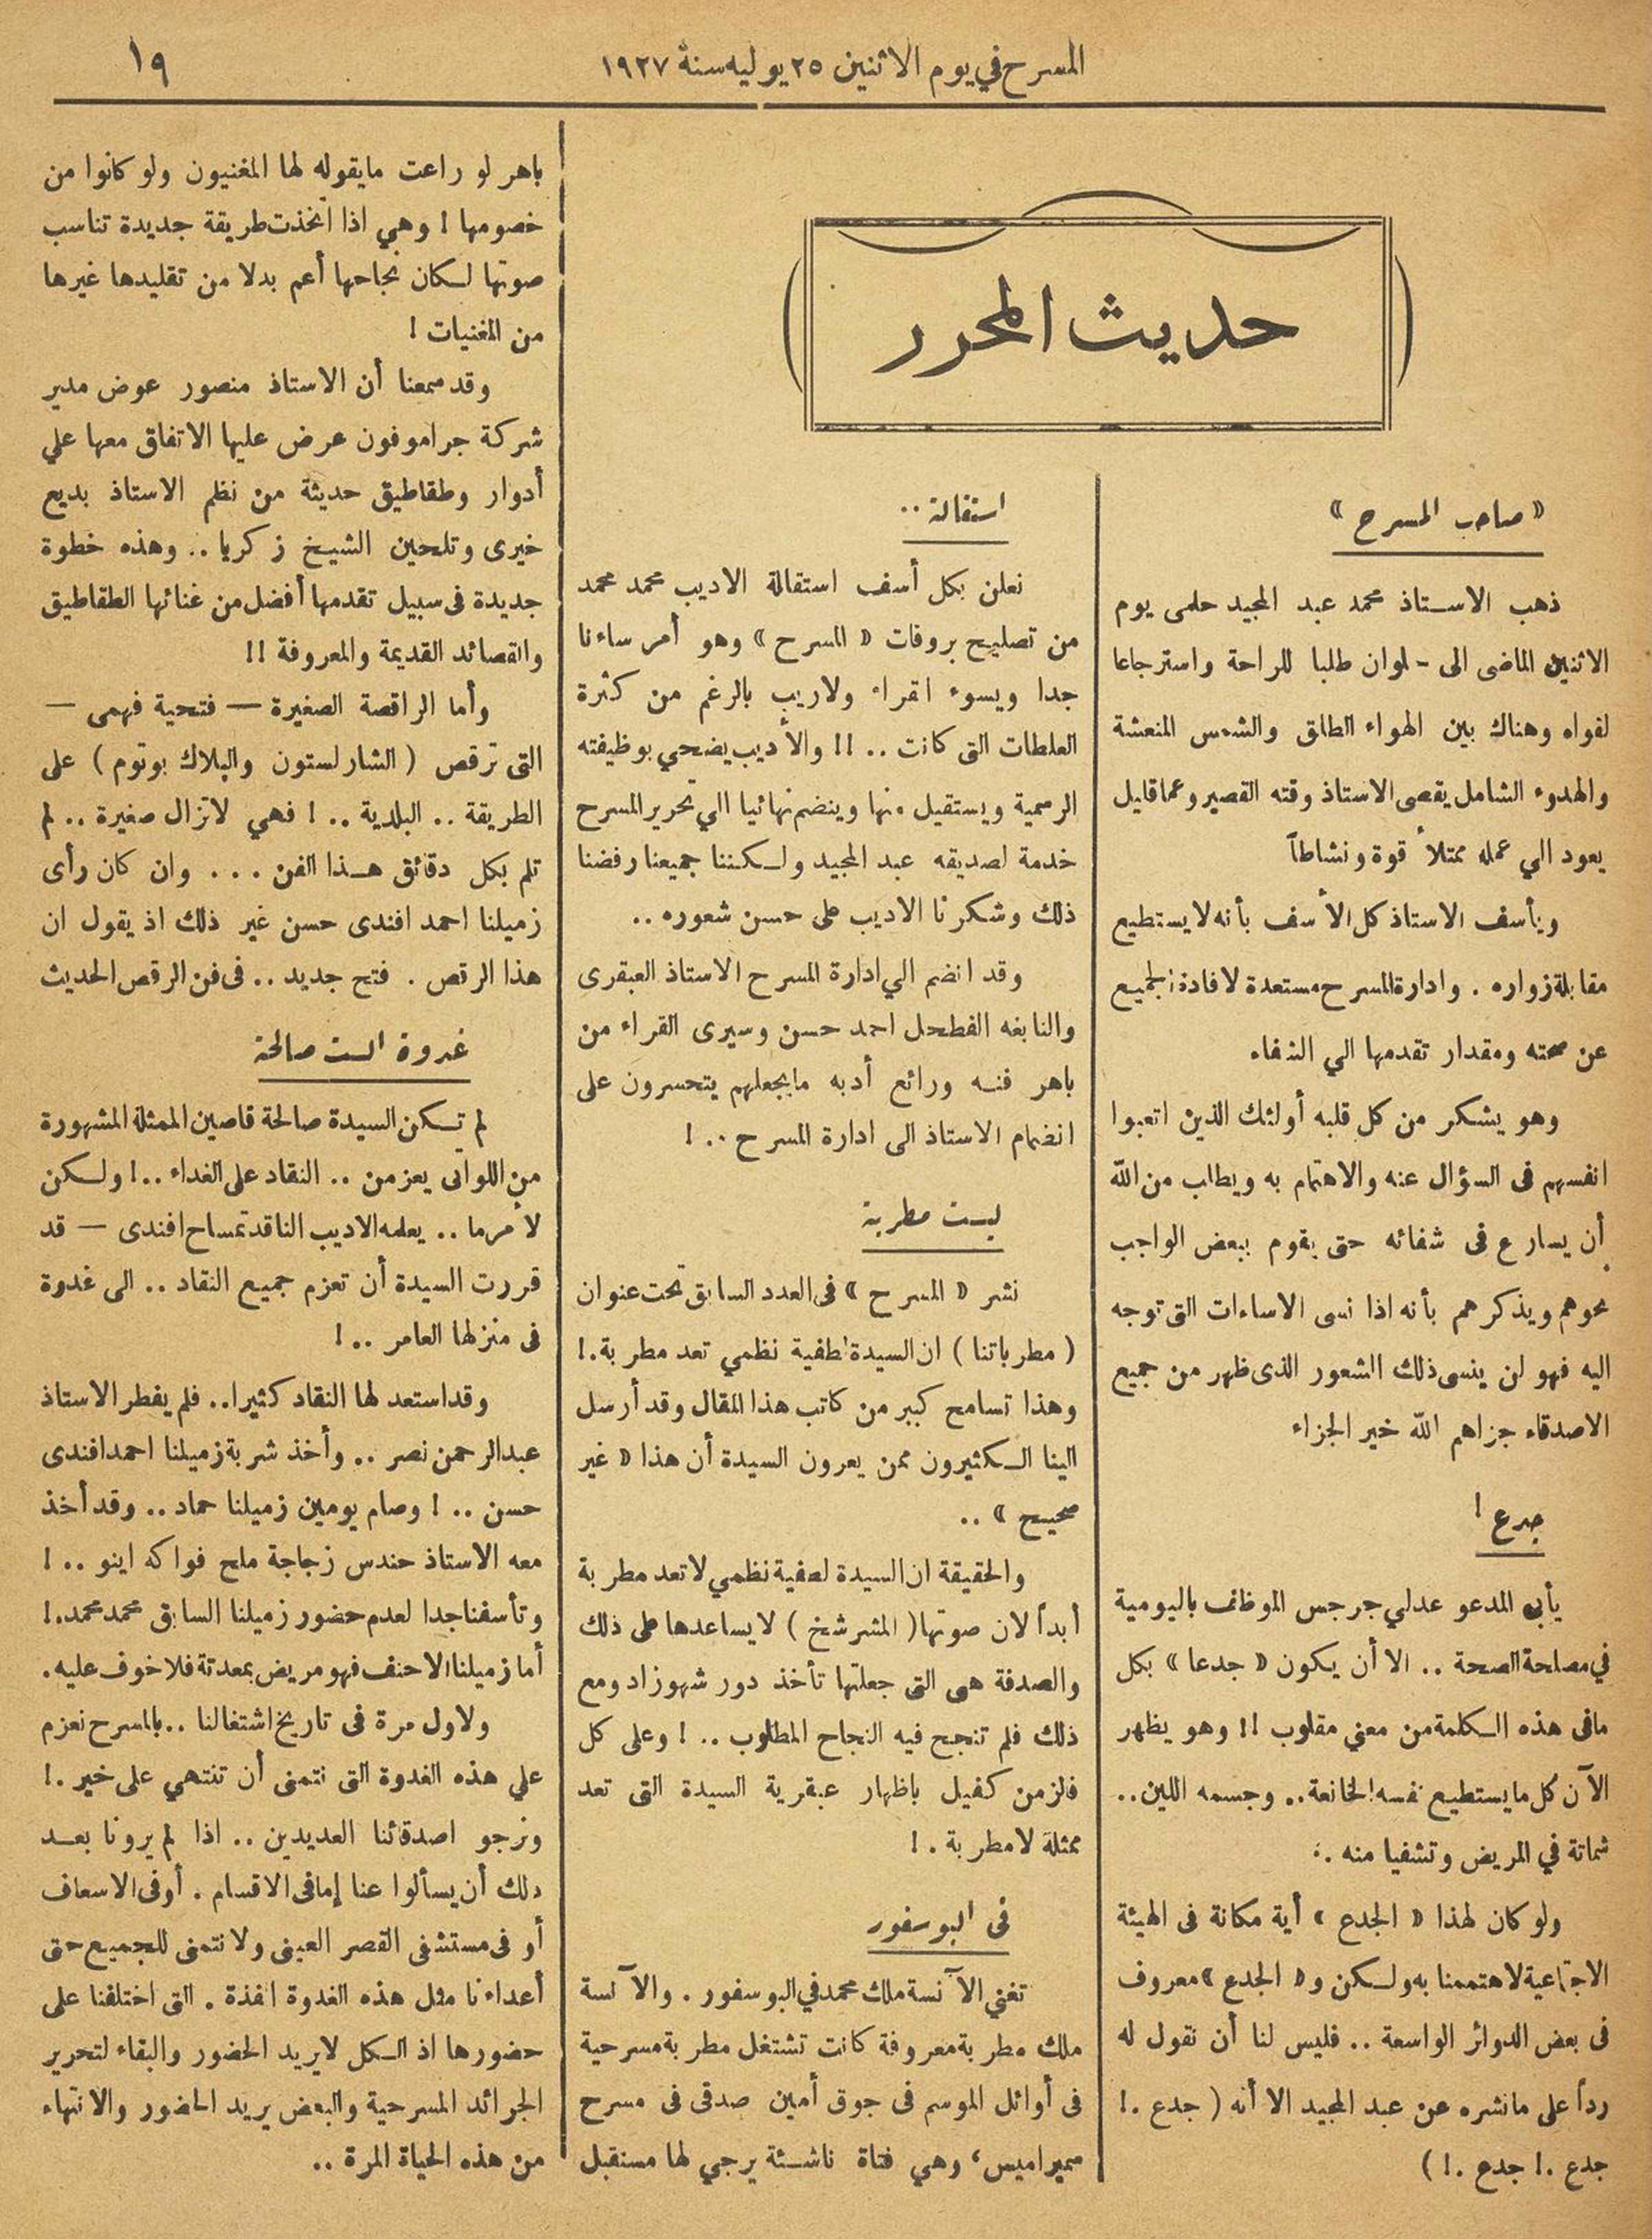 المسرح في يوم الاثنين ٢٥ يوليه سنة ١٩٢٧
١٩
حديث المحرر
« صاحب المسرح »
ذهب الاستاذ محمد عبد المجيد حلمى يوم
الاثنين الماضى الى - لوان طلبا للراحة واسترجاعا
لقواه وهناك بين الهواء الطلق والشمس المنعشة
والهدوء الشامل يقضى الاستاذ وقته القصير وعما قليل
يعود الي عمله ممتلأ قوة ونشاطاً
ويأسف الاستاذ كل الأسف بأنه لا يستطيع
مقابلة زواره . وادارة المسرح مستعدة لافادة الجميع
عن صحته ومقدار تقدمها الي الشفاء
وهو يشكر من كل قلبه أولئك الذين اتعبوا
انفسهم فى السؤال عنه والاهتمام به ويطلب من الله
أن يسارع فى شفائه حتى يقوم ببعض الواجب
نحوهم ويذكرهم بأنه اذا نسى الاساءات التى توجه
اليه فهو لن ينسى ذلك الشعور الذى ظهر من جميع
الاصدقاء جزاهم الله خير الجزاء
جدع !
يأبى المدعو عدلي جرجس الموظف باليومية
في مصلحة الصحة .. الا أن يكون « جدعا » بكل
مافى هذه الكلمة من معني مقلوب !! وهو يظهر
الآن كل ما يستطيع نفسه الخانعة .. وجسمه اللين ..
شماتة في المريض وتشفيا منه .
ولو كان لهذا « الجدع » أية مكانة فى الهيئة
الاجتماعية لاهتممنا به ولكن و« الجدع » معروف
فى بعض الدوائر الواسعة .. فليس لنا أن نقول له
رداً على مانشره عن عبد المجيد الا أنه ( جدع .!
جدع .! جدع .! )
استقالة ..
نعلن بكل أسف استقالة الاديب محمد محمد
من تصليح بروفات « المسرح » وهو أمر ساءنا
جدا ويسوء القراء ولاريب بالرغم من كثرة
الغلطات التى كانت .. !! والأديب يضحي بوظيفته
الرسمية ويستقيل منها وينضم نهائيا الي تحرير المسرح
خدمة لصديقه عبد المجيد ولكننا جميعنا رفضنا
ذلك وشكرنا الاديب على حسن شعوره ..
وقد انضم الي ادارة المسرح الاستاذ العبقرى
والنابغه الفطحل احمد حسن وسيرى القراء من
باهر فنه ورائع أدبه مايجعلهم يتحسرون على
انضمام الاستاذ الى ادارة المسرح .. !
ليست مطربة
نشر « المسرح » فى العدد السابق تحت عنوان
( مطرباتنا ) ان السيدة لطفية نظمي تعد مطربة .!
وهذا تسامح كبير من كاتب هذا المقال وقد أرسل
الينا الكثيرون ممن يعرون السيدة أن هذا « غير
صحيح » ..
والحقيقة ان السيدة لطفية نظمي لا تعد مطربة
أبداً لان صوتها ( المشرشخ ) لا يساعدها على ذلك
والصدفة هى التى جعلتها تأخذ دور شهوزاد ومع
ذلك فلم تنجح فيه النجاح المطلوب .. ! وعلى كل
فالزمن كفيل باظهار عبقرية السيدة التى تعد
ممثلة لا مطربة . !
فى البوسفور
تغني الآنسة ملك محمد في البوسفور . والآنسة
ملك مطربة معروفة كانت تشتغل مطربة مسرحية
فى أوائل الموسم فى جوق أمين صدقى فى مسرح
سميراميس ، وهي فتاة ناشئة يرجي لها مستقبل
باهر لو راعت مايقوله لها المغنيون ولو كانوا من
خصومها ! وهي اذا اتخذت طريقة جديدة تناسب
صوتها لكان نجاحها أعم بدلا من تقليدها غيرها
من المغنيات !
وقد سمعنا أن الاستاذ منصور عوض مدير
شركة جراموفون عرض عليها الاتفاق معها علي
أدوار وطقاطيق حديثة من نظم الاستاذ بديع
خيرى وتلحين الشيخ زكريا .. وهذه خطوة
جديدة فى سبيل تقدمها أفضل من غنائها الطقاطيق
والقصائد القديمة والمعروفة !!
وأما الراقصة الصغيرة — فتحية فهمى —
التى ترقص ( الشارلستون والبلاك بوتوم ) على
الطريقة .. البلدية .. ! فهي لاتزال صغيرة .. لم
تلم بكل دقائق هذا الفن ... وان كان رأى
زميلنا احمد افندى حسن غير ذلك اذ يقول ان
هذا الرقص . فتح جديد .. فى فن الرقص الحديث
غدوة الست صالحة
لم تكن السيدة صالحة قاصين الممثلة المشهورة
من اللواتى يعزمن .. النقاد على الغداء .. ! ولكن
لأمر ما .. يعلمه الاديب الناقد تمساح افندى — قد
قررت السيدة أن تعزم جميع النقاد .. الى غدوة
فى منزلها العامر .. !
وقد استعد لها النقاد كثيرا .. فلم يفطر الاستاذ
عبد الرحمن نصر .. وأخذ شربة زميلنا احمد افندى
حسن .. ! وصام يومين زميلنا حماد .. وقد أخذ
معه الاستاذ حندس زجاجة ملح فواكه اينو .. !
وتأسفنا جدا لعدم حضور زميلنا السابق محمد محمد .!
أما زميلنا الاحنف فهو مريض بمعدتة فلا خوف عليه .
ولاول مرة فى تاريخ اشتغالنا .. بالمسرح نعزم
علي هذه الغدوة التى نتمنى أن تنتهي على خير .!
ونرجو اصدقائنا العديدين .. اذا لم يرونا بعد
ذلك أن يسألوا عنا إما فى الاقسام . أو فى الاسعاف
أو فى مستشفى القصر العينى ولا نتمنى للجميع حتى
أعداءنا مثل هذه الغدوة الفذة . التى اختلفنا على
حضورها اذ الكل لايريد الحضور والبقاء لتحرير
الجرائد المسرحية والبعض يريد الحضور والانتهاء
من هذه الحياة المرة ..